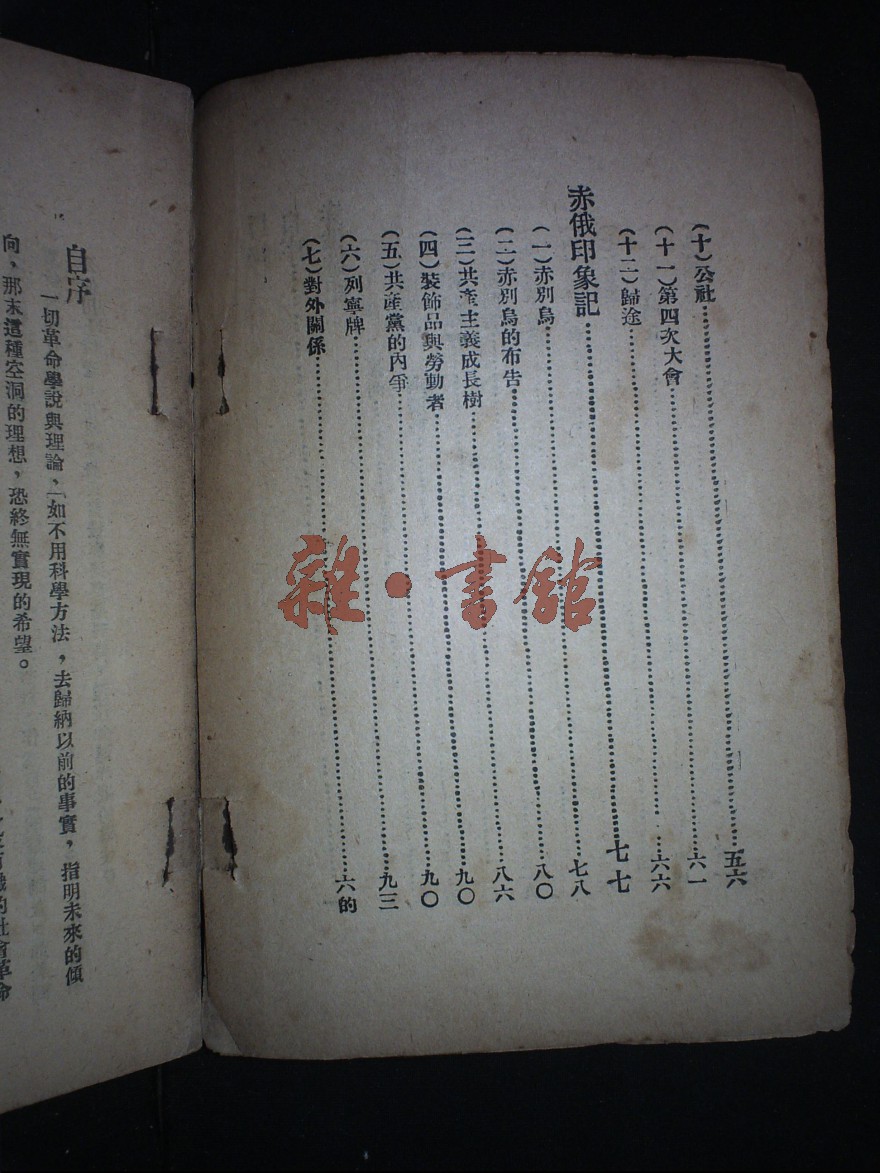 (十)公社……五六
(十一)第四次大會……六一
(十二)歸途……六六
赤俄印象記……七七
(一)赤別鳥……七八
(二)赤別鳥的布告……八〇
(三)共產主義成長樹……八六
(四)裝飾品與勞動者……九〇
(五)共產黨的內爭……九〇
(六)列寧牌……九三
(七)對外關係……六的
自序
一切革命學說與理論、如不用科學方法,去歸納以前的事實,指明未來的傾
向,那末這種空洞的理想,恐終無實現的希望。
的社會革命
雜·書館